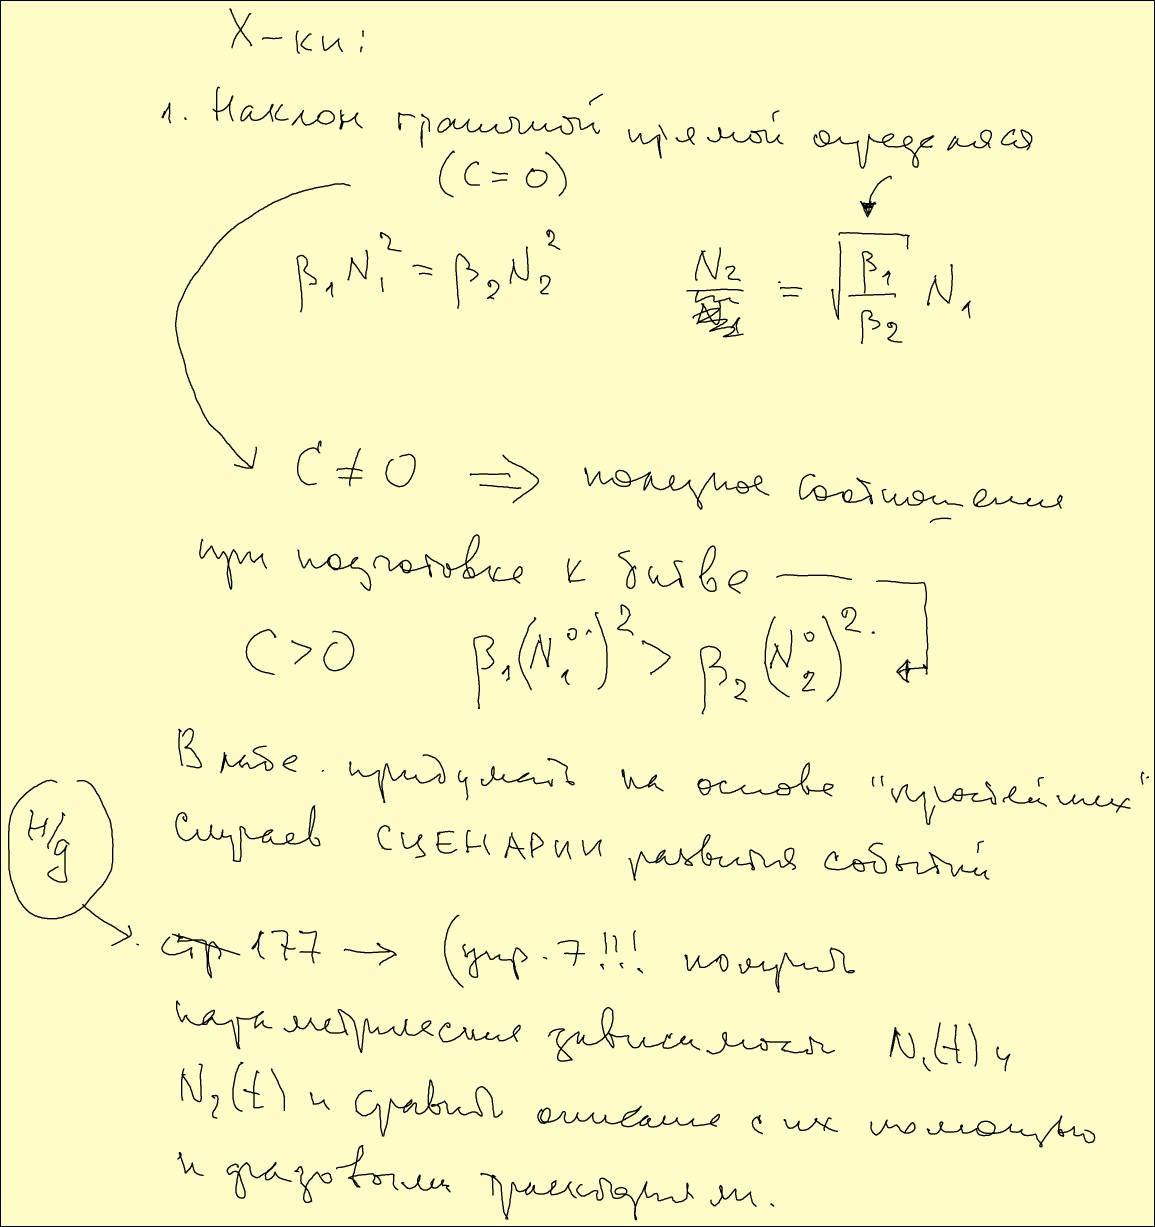 Х-ки:
1. Наклон граничной прямой определяся
(C = 0)
β₁N₁² = β₂N₂² N₂ = √(β₁/β₂) N₁
C ≠ 0 ⇒ полезное соотношение
при подготовке к битве
C > 0 β₁(N₁⁰)² > β₂(N₂⁰)².
В лабе. придумать на основе "простейших"
Н/д
случаев СЦЕНАРИИ развития событий
стр 177 → (упр. 7!!! получить
параметрические зависимости N₁(t) и
N₂(t) и сравнить описание с их помощью
и фазовыми траекториям.